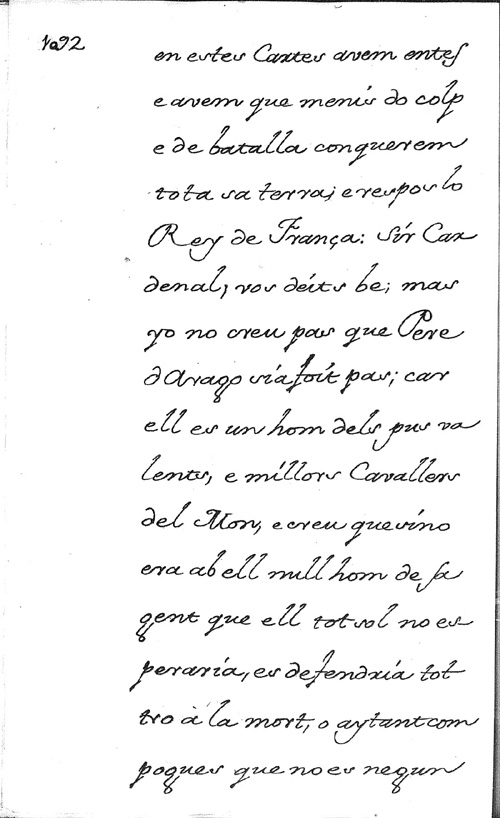 1092
en estes Cartes avem entes
e avem que menys do colp
e de batalla conquerem
tota sa terra; e respos lo
Rey de França: Sír Car
denal, vos déits be; mas
yo no creu pas que Pere
d Arago sía foit pas; car
ell es un hom dels pus va
lents, e míllors Cavallers
del Mon, e creu que síno
era ab ell null hom de sa
gent que ell tot sol no es
peraría, es defendría tot
tro à la mort, o aytant com
pogues que no es negun